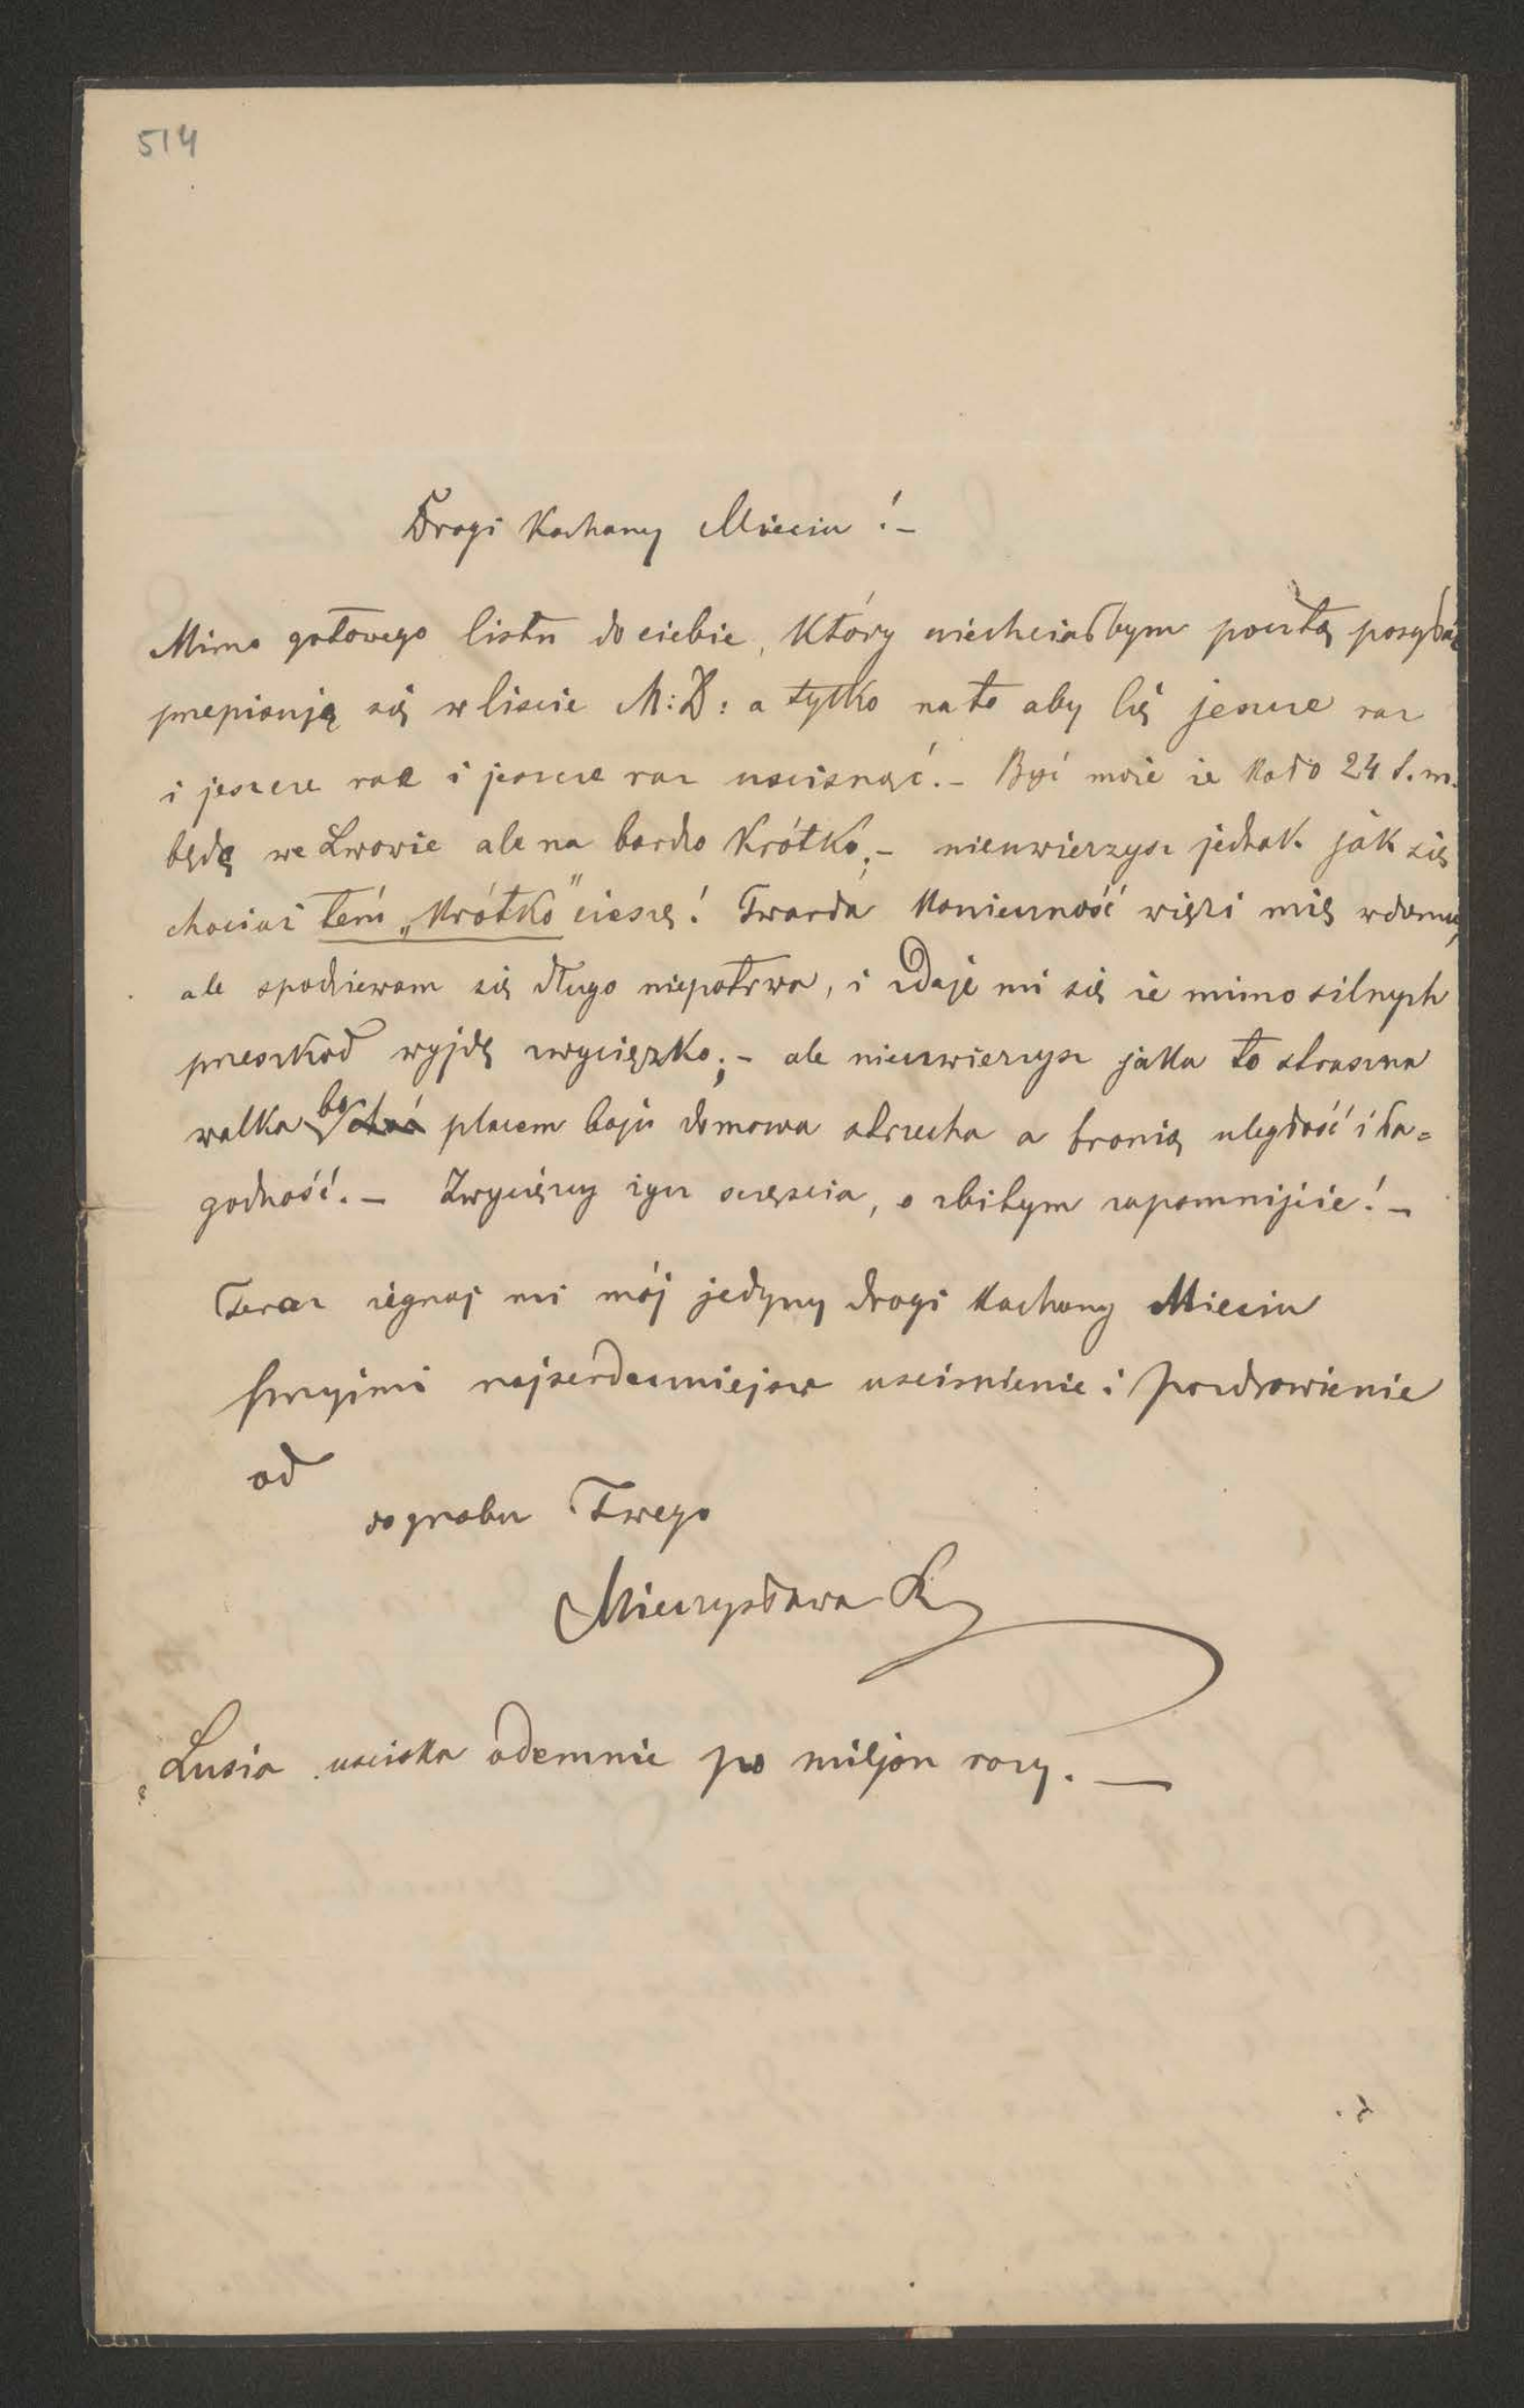 514
Drogi Kochany Mieciu! –
Mimo gotowego listu do ciebie, który niechciałbym pocztą posyłać
przepisuję się w liscie M: D: a tylko nato aby Cię jeszcze raz
i jeszcze raz i jeszcze raz uscisnąć. – Być może że koło 24 t. m.
będę we Lwowie ale na bardzo krótko; – nieuwierzysz jednak jak się
chociaż tem „krótko" cieszę! Twarda konieczność więzi mię wdomu,
ale spodziewam się długo niepotrwa, i zdaje mi się że mimo silnych
przeszkod wyjdę zwycięzko; – ale nieuwierzysz jaka to straszna
walka bo placem boju domowa strzecha a bronią uległość i ła=
godność. – Zwycięzcy życz szczęscia, o zbitym zapomnijcie! –
Teraz żegnaj mi mój jedyny drogi kochany Mieciu
najserdeczniejsze uscisnienie i pozdrowienie
od
do grobu Twego
Mieczysława
Lusia usciska odemnie po miljon razy. —